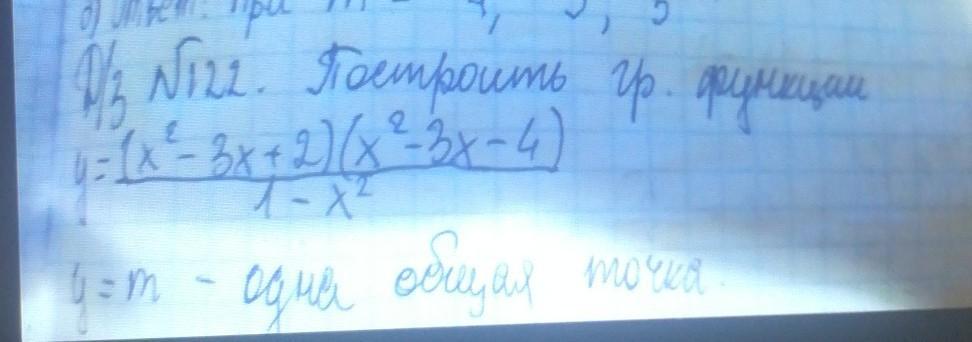 б) Ответ: при m =
Д/з №122. Построить гр. функции
y = (x² - 3x + 2)(x² - 3x - 4) / 1 - x²
y = m - одна общая точка.